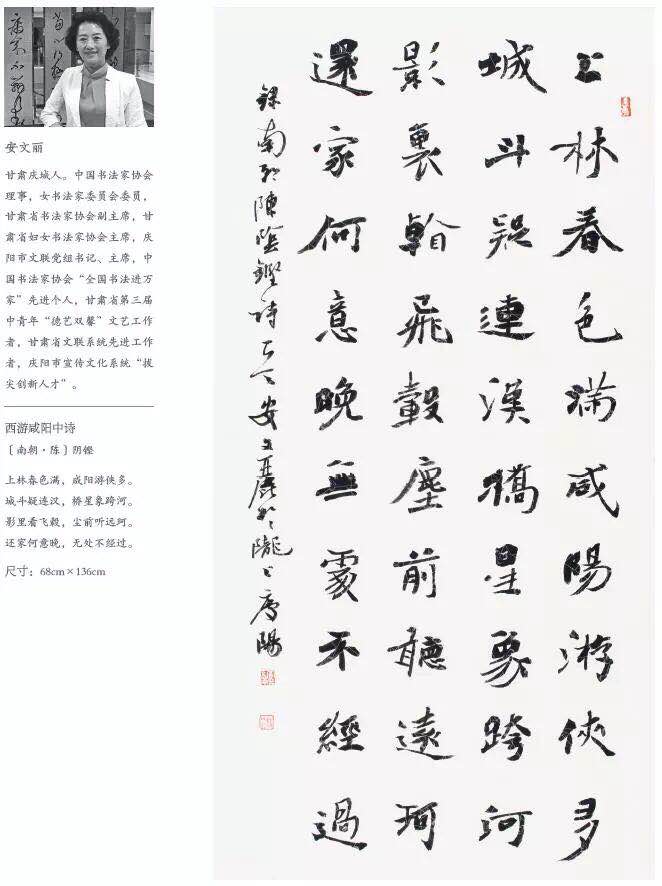 安文丽
甘肃庆城人。中国书法家协会
理事，女书法家委员会委员，
甘肃省书法家协会副主席，甘
肃省妇女书法家协会主席，庆
阳市文联党组书记、主席，中
国书法家协会“全国书法进万
家”先进个人，甘肃省第三届
中青年“德艺双馨”文艺工作
者，甘肃省文联系统先进工作
者，庆阳市宣传文化系统“拔
尖创新人才”。
西游咸阳中诗
〔南朝·陈〕阴铿
上林春色满，咸阳游侠多。
城斗疑连汉，桥星象跨河。
影里看飞毂，尘前听远珂。
还家何意晚，无处不经过。
尺寸：68cm×136cm
上林春色滿咸陽游俠多
城斗疑連漢橋星象跨河
影裏看飛轂塵前聽遠珂
還家何意晚無處不經過
錄南朝陳陰鏗詩 安文麗於隴上慶陽